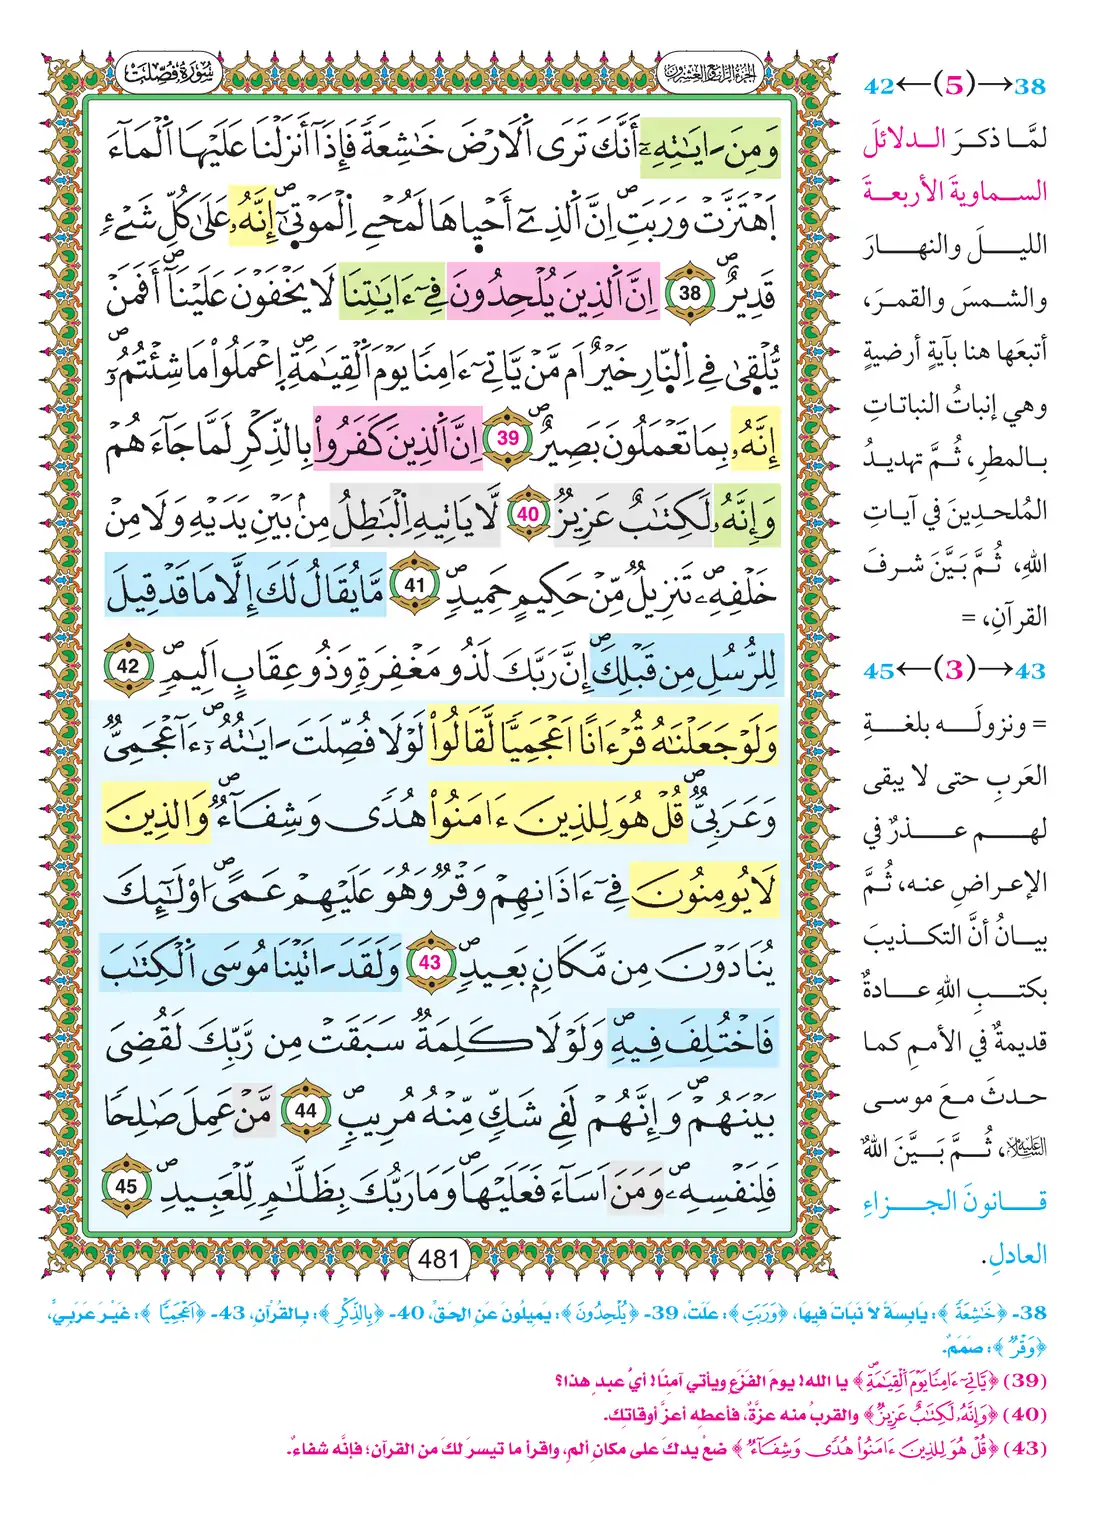 سُورَةُ فُصِّلَتْ
الجزء الرابع والعشرون
وَمِنَ اٰيَٰتِهِۦٓ أَنَّكَ تَرَى اَلَارْضَ خَٰشِعَةٗ فَإِذَآ أَنزَلْنَا عَلَيْهَا اَلْمَآءَ
اَهْتَزَّتْ وَرَبَتِۖ اِنَّ اَلذِےٓ أَحْي۪اهَا لَمُحْيِ اِلْمَوْت۪يٰٓۖ إِنَّهُۥ عَلَىٰ كُلِّ شَےْءٖ
قَدِيرٌۖ 38 اِنَّ اَلذِينَ يُلْحِدُونَ فِےٓ ءَايَٰتِنَا لَا يَخْفَوْنَ عَلَيْنَآۖ أَفَمَنْ
يُّلْقَىٰ فِے اِلنّ۪ارِ خَيْرٌ اَم مَّنْ يَّاتِےٓ ءَامِناٗ يَوْمَ اَلْقِيَٰمَةِۖ اِعْمَلُواْ مَا شِئْتُمُۥٓۖ
إِنَّهُۥ بِمَا تَعْمَلُونَ بَصِيرٌۖ 39 اِنَّ اَلذِينَ كَفَرُواْ بِالذِّكْرِ لَمَّا جَآءَهُمْ
وَإِنَّهُۥ لَكِتَٰبٌ عَزِيزٞ 40 لَّا يَاتِيهِ اِلْبَٰطِلُ مِنۢ بَيْنِ يَدَيْهِ وَلَا مِنْ
خَلْفِهِۦۖ تَنزِيلٞ مِّنْ حَكِيمٍ حَمِيدٖۖ 41 مَّا يُقَالُ لَكَ إِلَّا مَا قَدْ قِيلَ
لِلرُّسُلِ مِن قَبْلِكَۖ إِنَّ رَبَّكَ لَذُو مَغْفِرَةٖ وَذُو عِقَابٍ اَلِيمٖۖ 42
وَلَوْ جَعَلْنَٰهُ قُرْءَاناً اَعْجَمِيّاٗ لَّقَالُواْ لَوْلَا فُصِّلَتَ اٰيَٰتُهُۥٓۖ ءَا۬عْجَمِيّٞ
وَعَرَبِيّٞۖ قُلْ هُوَ لِلذِينَ ءَامَنُواْ هُديٗ وَشِفَآءٞۖ وَالذِينَ
لَا يُومِنُونَ فِےٓ ءَاذَانِهِمْ وَقْرٞ وَهُوَ عَلَيْهِمْ عَميًۖ اُوْلَٰٓئِكَ
يُنَادَوْنَ مِن مَّكَانِۢ بَعِيدٖۖ 43 وَلَقَدَ اٰتَيْنَا مُوسَى اَلْكِتَٰبَ
فَاخْتُلِفَ فِيهِۖ وَلَوْلَا كَلِمَةٞ سَبَقَتْ مِن رَّبِّكَ لَقُضِيَ
بَيْنَهُمْۖ وَإِنَّهُمْ لَفِے شَكّٖ مِّنْهُ مُرِيبٖۖ 44 مَّنْ عَمِلَ صَٰلِحاٗ
فَلِنَفْسِهِۦۖ وَمَنَ اَسَآءَ فَعَلَيْهَاۖ وَمَا رَبُّكَ بِظَلَّٰمٖ لِّلْعَبِيدِۖ 45
481
42←(5)→38
لمَّا ذكرَ الدلائلَ
السماويةَ الأربعةَ
الليلَ والنهارَ
والشمسَ والقمرَ،
أتبعَها هنا بآيةٍ أرضيةٍ
وهي إنباتُ النباتاتِ
بالمطرِ، ثُمَّ تهديدُ
المُلحدِينَ في آياتِ
اللهِ، ثُمَّ بَيَّنَ شرفَ
القرآنِ، =
45←(3)→43
= ونزولَه بلغةِ
العَربِ حتى لا يبقى
لهم عذرٌ في
الإعراضِ عنه، ثُمَّ
بيانُ أنَّ التكذيبَ
بكتبِ اللهِ عادةٌ
قديمةٌ في الأممِ كما
حدثَ معَ موسى
عليه السلام، ثُمَّ بَيَّنَ اللهُ
قانونَ الجزاءِ
العادلِ.
38- ﴿خَٰشِعَةٗ﴾: يَابِسَةً لاَ نَبَاتَ فِيهَا، ﴿وَرَبَتِ﴾: عَلَتْ، 39- ﴿يُلْحِدُونَ﴾: يَمِيلُونَ عَنِ الحَقِّ، 40- ﴿بِالذِّكْرِ﴾: بِالقُرْآنِ، 43- ﴿اَعْجَمِيّاٗ﴾: غَيْرَ عَرَبِيٍّ،
﴿وَقْرٞ﴾: صَمَمٌ.
(39) ﴿يَّاتِےٓ ءَامِناٗ يَوْمَ اَلْقِيَٰمَةِۖ﴾ يا الله! يومَ الفَزَعِ ويأتي آمنًا! أيُّ عبدٍ هذا؟
(40) ﴿وَإِنَّهُۥ لَكِتَٰبٌ عَزِيزٞ﴾ والقربُ منه عزَّةٌ، فأعطِه أعزَّ أوقاتِك.
(43) ﴿قُلْ هُوَ لِلذِينَ ءَامَنُواْ هُديٗ وَشِفَآءٞ﴾ ضعْ يدكَ على مكانِ ألمٍ، واقرأ ما تيسرَ لكَ من القرآن؛ فإنَّه شفاءٌ.